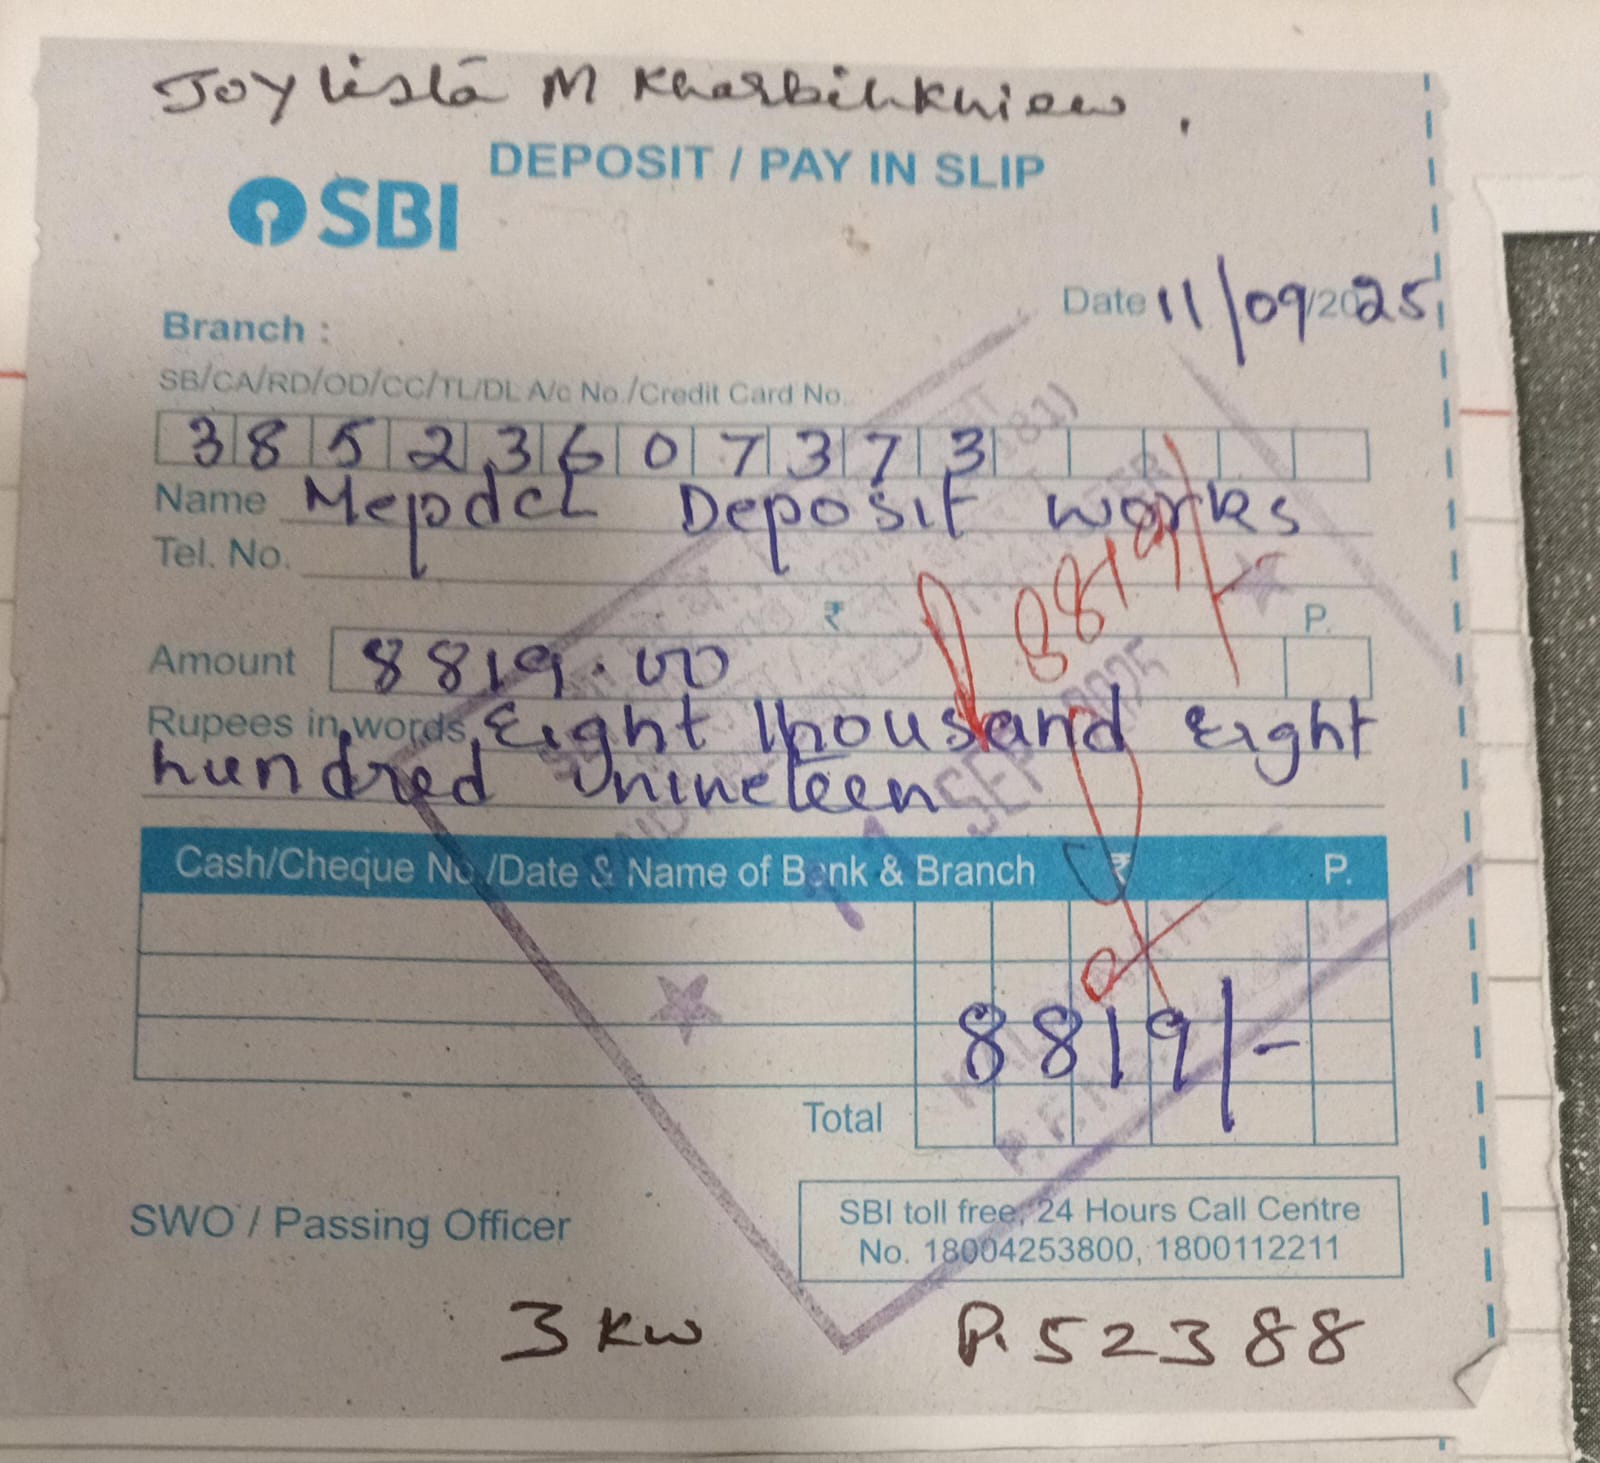 Joylista M Kharbihkhiew.
DEPOSIT / PAY IN SLIP
SBI
Date 11/09/2025
Branch :
SB/CA/RD/OD/CC/TL/DL A/c No./Credit Card No.
38523607373
Name Mepdcl Deposit works
Tel. No.
₹ 8819/-
P.
Amount 8819.00
Rupees in words Eight thousand Eight
hundred nineteen
SEP 2025
Cash/Cheque No./Date & Name of Bank & Branch ₹ P.
8819/-
Total
SWO / Passing Officer
SBI toll free, 24 Hours Call Centre
No. 18004253800, 1800112211
3 KW P. 52388